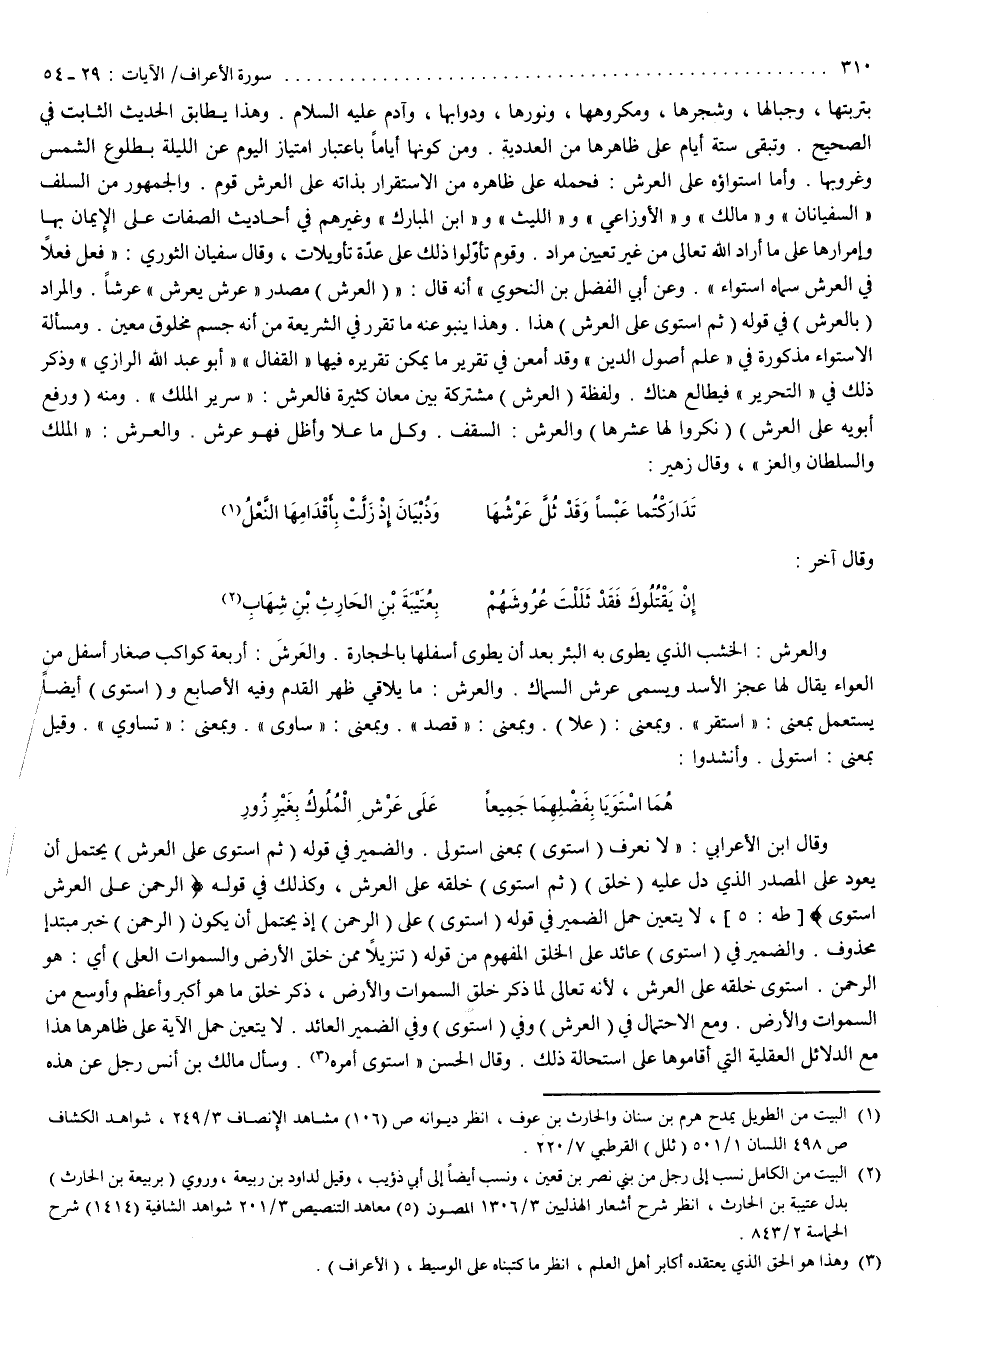 ٣١٠ ........................................ سورة الأعراف/ الآيات : ٢٩ ـ ٥٤
بتربتها ، وجبالها ، وشجرها ، ومكروهها ، ونورها ، ودوابها ، وآدم عليه السلام . وهذا يطابق الحديث الثابت في
الصحيح . وتبقى ستة أيام على ظاهرها من العددية . ومن كونها أياماً باعتبار امتياز اليوم عن الليلة بطلوع الشمس
وغروبها . وأما استواؤه على العرش : فحمله على ظاهره من الاستقرار بذاته على العرش قوم . والجمهور من السلف
« السفيانان » و« مالك » و« الأوزاعي » و« الليث » و« ابن المبارك » وغيرهم في أحاديث الصفات على الإيمان بها
وإمرارها على ما أراد الله تعالى من غير تعيين مراد . وقوم تأوّلوا ذلك على عدّة تأويلات ، وقال سفيان الثوري : « فعل فعلاً
في العرش سماه استواء » . وعن أبي الفضل بن النحوي » أنه قال : « ( العرش ) مصدر « عرش يعرش » عرشاً . والمراد
( بالعرش ) في قوله ( ثم استوى على العرش ) هذا . وهذا ينبو عنه ما تقرر في الشريعة من أنه جسم مخلوق معين . ومسألة
الاستواء مذكورة في « علم أصول الدين » وقد أمعن في تقرير ما يمكن تقريره فيها « القفال » « أبو عبد الله الرازي » وذكر
ذلك في « التحرير » فيطالع هناك . ولفظة ( العرش ) مشتركة بين معان كثيرة فالعرش : « سرير الملك » . ومنه ( ورفع
أبويه على العرش ) ( نكروا لها عشرها ) والعرش : السقف . وكل ما علا وأظل فهو عرش . والعرش : « الملك
والسلطان والعز » ، وقال زهير :
تَدَارَكْتُما عَبْساً وَقَدْ ثُلَّ عَرْشُهَا وَذُبْيَانَ إِذْ زَلَّتْ بِأَقْدَامِهَا النَّعْلُ(١)
وقال آخر :
إِنْ يَقْتُلُوكَ فَقَدْ ثَلَلْتَ عُرُوشَهُمْ بِعُتَيْبَةَ بْنِ الحَارِثِ بْنِ شِهَابِ(٢)
والعرش : الخشب الذي يطوى به البئر بعد أن يطوى أسفلها بالحجارة . والعَرشَ : أربعة كواكب صغار أسفل من
العواء يقال لها عجز الأسد ويسمى عرش السماك . والعرش : ما يلاقي ظهر القدم وفيه الأصابع و( استوى ) أيضاً
يستعمل بمعنى : « استقر » . وبمعنى : ( علا ) . وبمعنى : « قصد » . وبمعنى : « ساوى » . وبمعنى : « تساوي » . وقيل
بمعنى : استولى . وأنشدوا :
هُمَا اسْتَوَيَا بِفَضْلِهِمَا جَمِيعاً عَلَى عَرْشِ الْمُلُوكِ بِغَيْرِ زُورِ
وقال ابن الأعرابي : « لا نعرف ( استوى ) بمعنى استولى . والضمير في قوله ( ثم استوى على العرش ) يحتمل أن
يعود على المصدر الذي دل عليه ( خلق ) ( ثم استوى ) خلقه على العرش ، وكذلك في قوله ﴿ الرحمن على العرش
استوى ﴾ [ طه : ٥ ] ، لا يتعين حمل الضمير في قوله ( استوى ) على ( الرحمن ) إذ يحتمل أن يكون ( الرحمن ) خبر مبتدإ
محذوف . والضمير في ( استوى ) عائد على الخلق المفهوم من قوله ( تنزيلاً ممن خلق الأرض والسموات العلى ) أي : هو
الرحمن . استوى خلقه على العرش ، لأنه تعالى لما ذكر خلق السموات والأرض ، ذكر خلق ما هو أكبر وأعظم وأوسع من
السموات والأرض . ومع الاحتمال في ( العرش ) وفي ( استوى ) وفي الضمير العائد . لا يتعين حمل الآية على ظاهرها هذا
مع الدلائل العقلية التي أقاموها على استحالة ذلك . وقال الحسن « استوى أمره(٣) . وسأل مالك بن أنس رجل عن هذه
(١) البيت من الطويل يمدح هرم بن سنان والحارث بن عوف ، انظر ديوانه ص (١٠٦) مشاهد الإنصاف ٢٤٩/٣ ، شواهد الكشاف
ص ٤٩٨ اللسان ٥٠١/١ ( ثلل ) القرطبي ٢٢٠/٧ .
(٢) البيت من الكامل نسب إلى رجل من بني نصر بن قعين ، ونسب أيضاً إلى أبي ذؤيب ، وقيل لداود بن ربيعة ، وروي ( بربيعة بن الحارث )
بدل عتيبة بن الحارث ، انظر شرح أشعار الهذليين ١٣٠٦/٣ المصون (٥) معاهد التنصيص ٢٠١/٣ شواهد الشافية (٤١٤) شرح
الحماسة ٨٤٣/٢ .
(٣) وهذا هو الحق الذي يعتقده أكابر أهل العلم ، انظر ما كتبناه على الوسيط ، ( الأعراف ) .